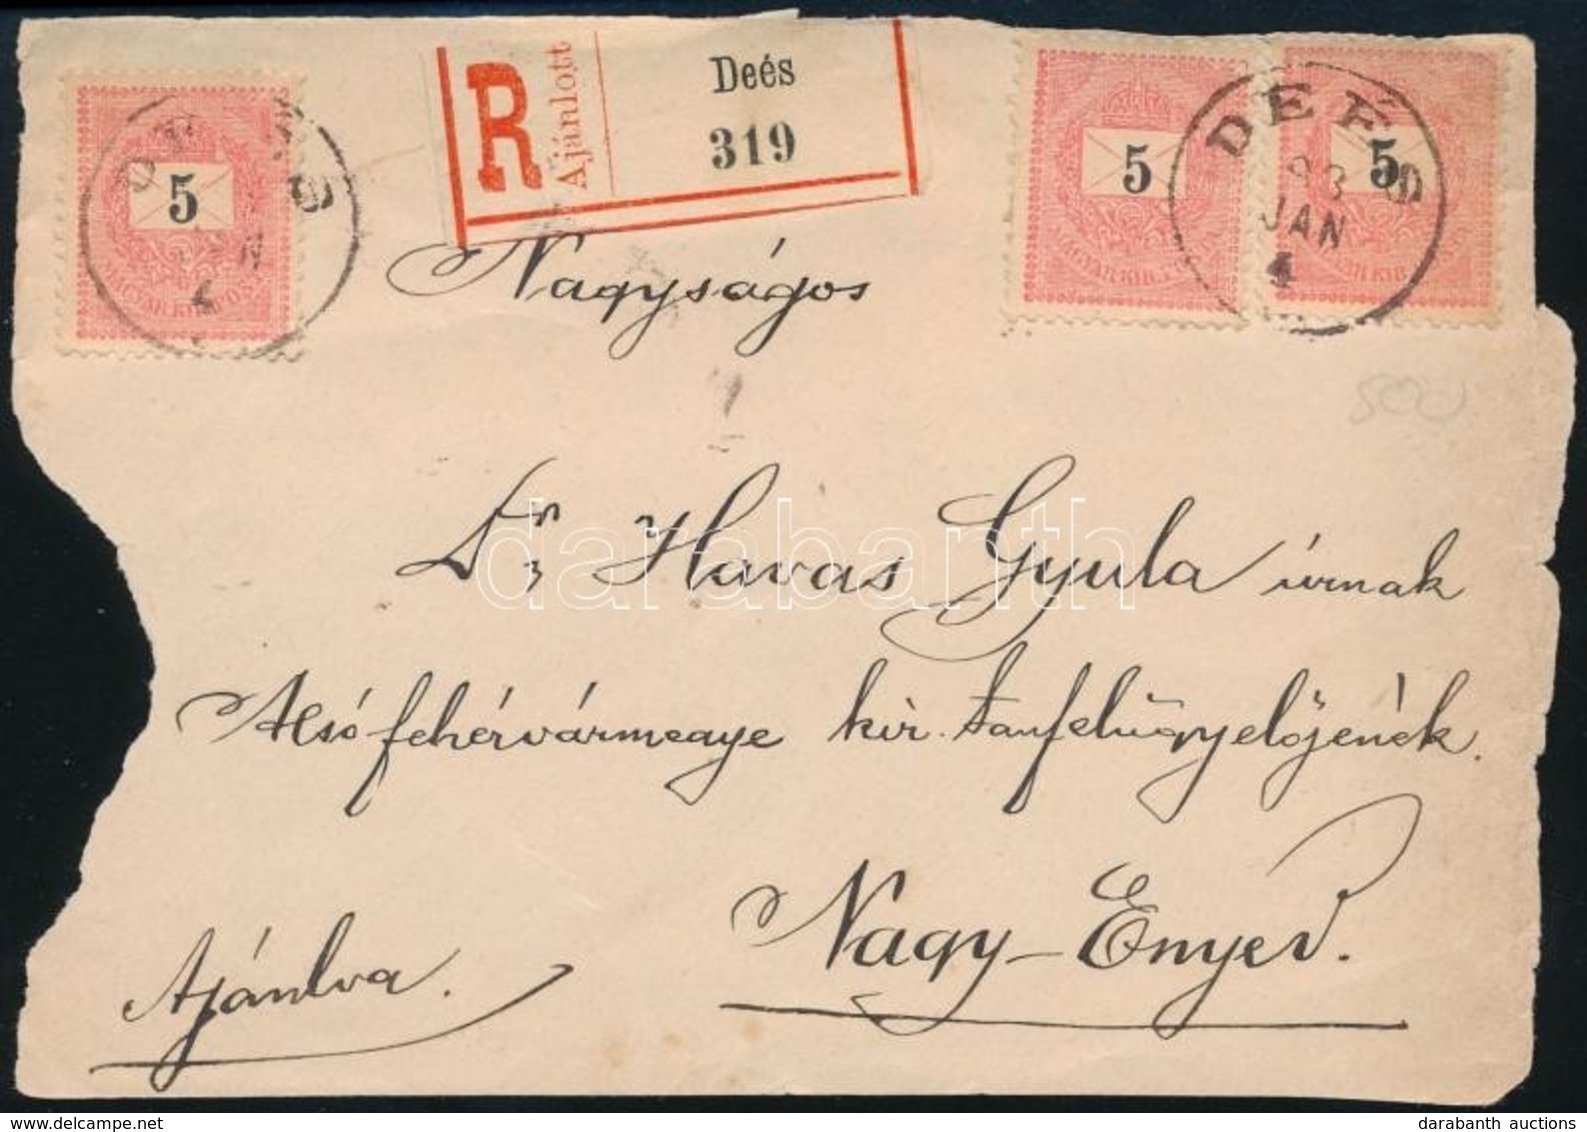 R
Ajánlott
Deés
319
5
5
5
DEÉS
93
JAN
4
JAN
4
Nagyságos
Dr. Havas Gyula úrnak
Alsófehérvármegye kir. tanfelügyelőjének.
Nagy-Enyed.
Ajánlva.
500
darabanth
darabanth auctions